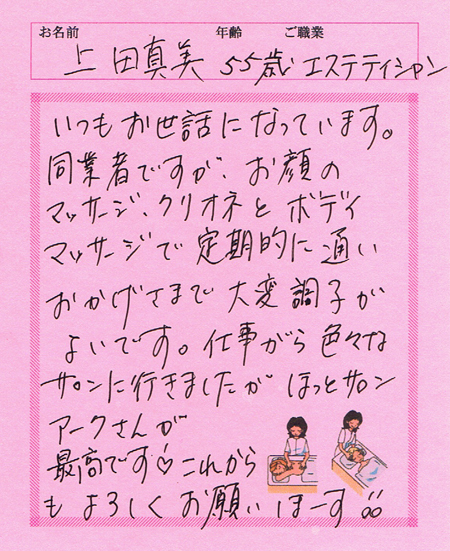 お名前 年齢 ご職業
上田真美 55歳 エステティシャン
いつもお世話になっています。
同業者ですが、お顔の
マッサージ、クリオネとボディ
マッサージで定期的に通い
おかげさまで大変調子が
よいです。仕事がら色々な
サロンに行きましたがほっとサロン
アークさんが
最高です♡これから
もよろしくお願いしまーす